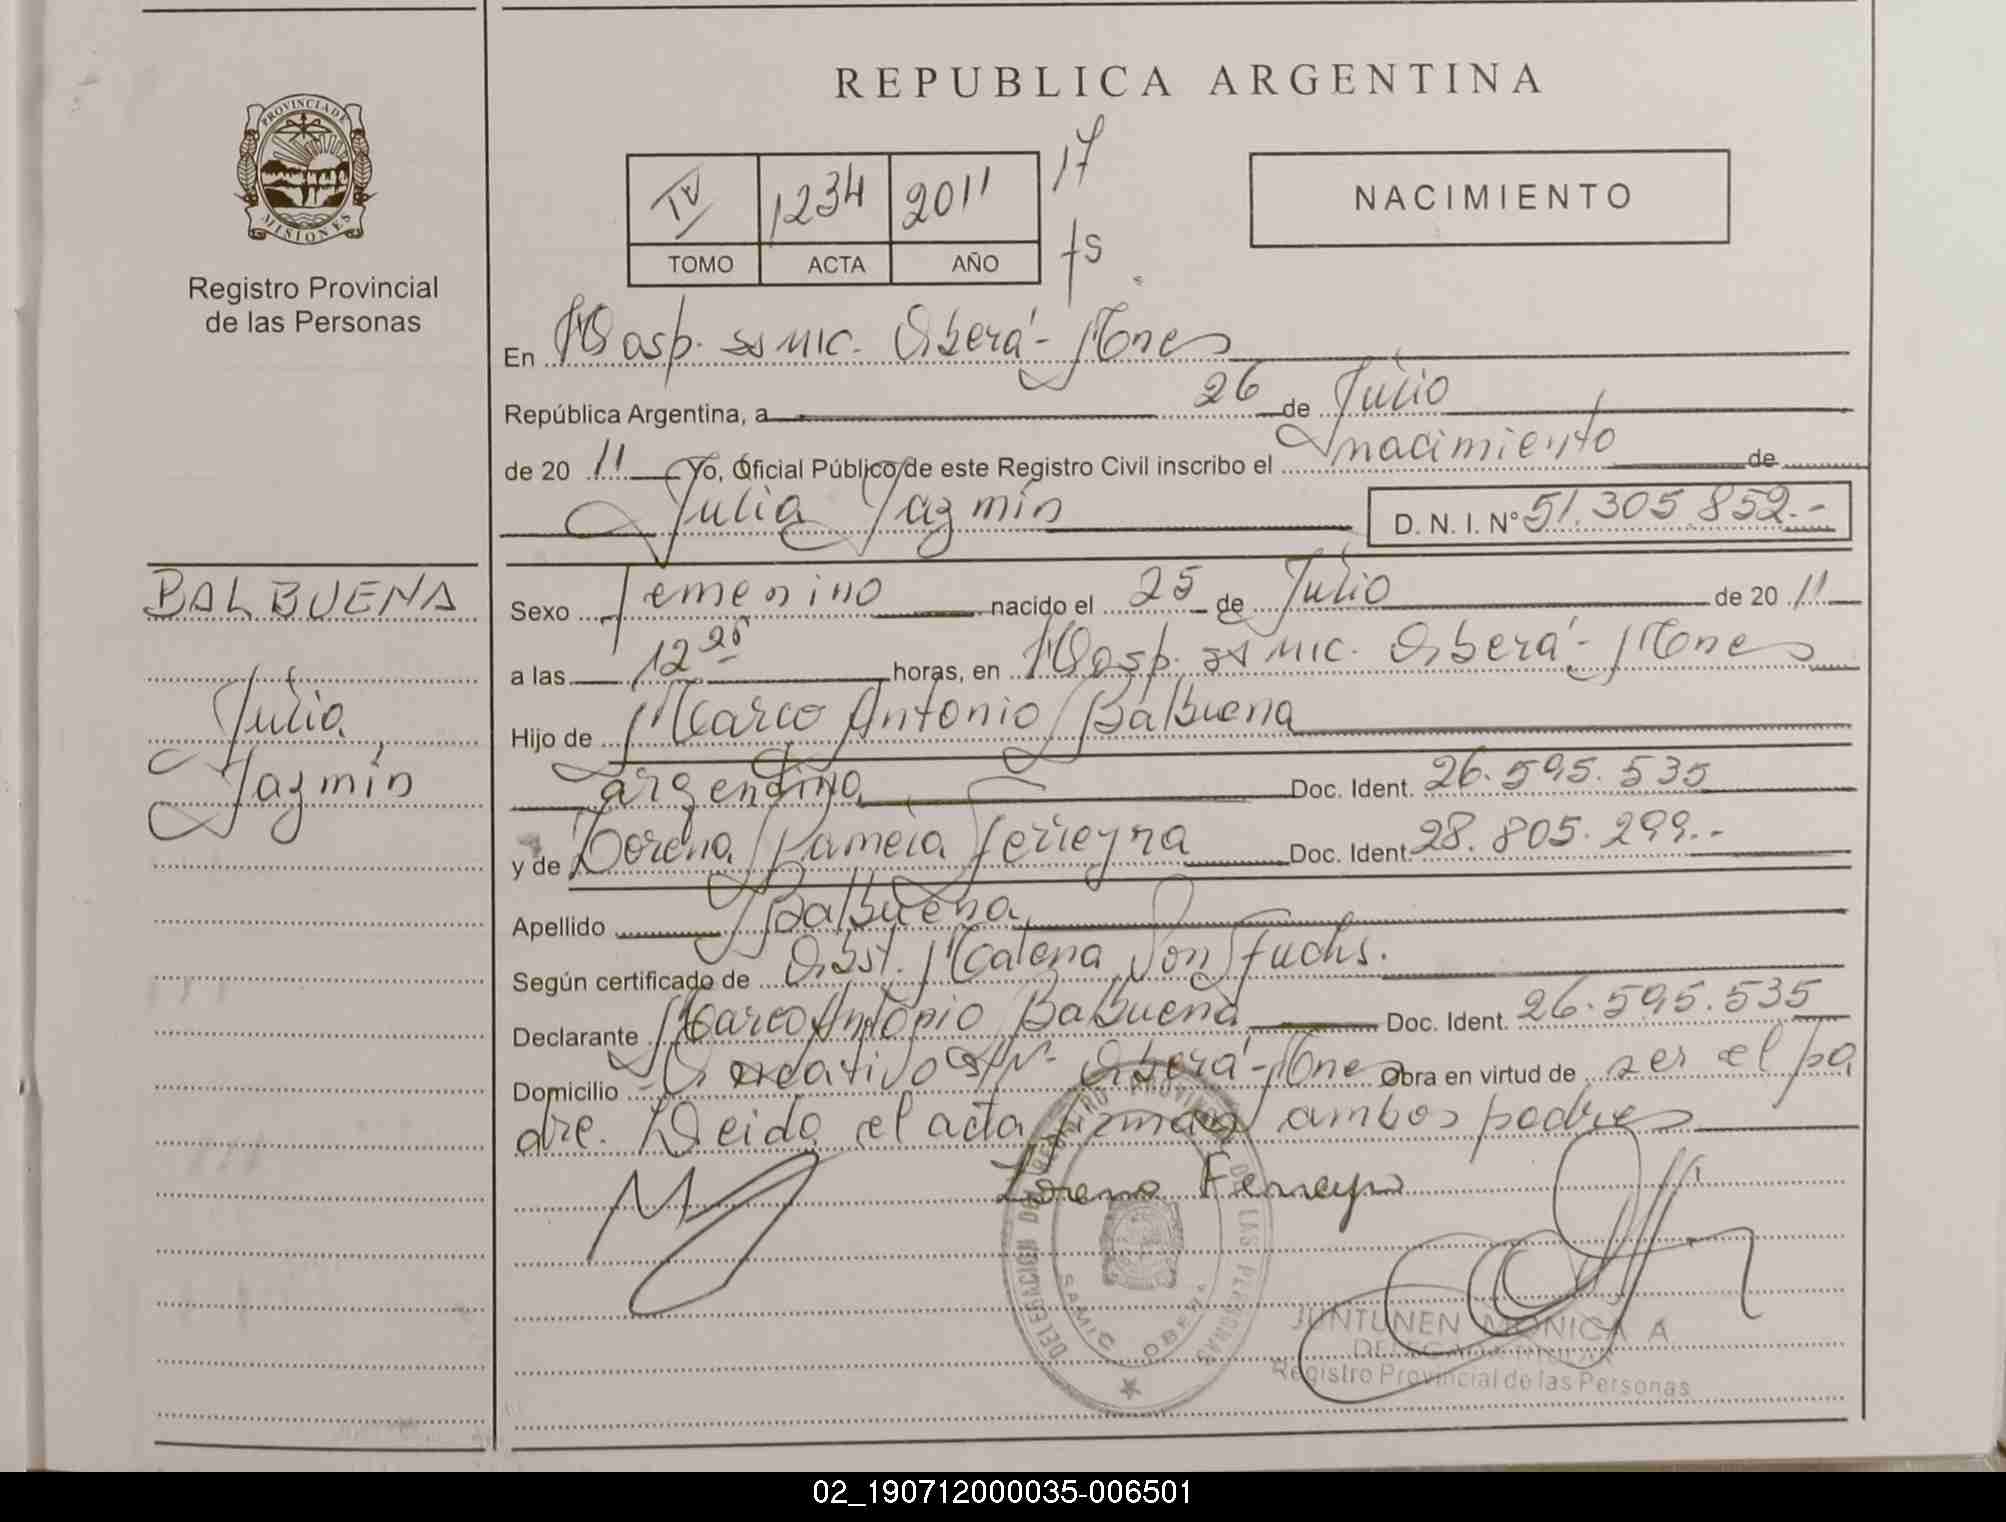 PROVINCIA DE MISIONES
Registro Provincial
de las Personas
BALBUENA
Julia
Jazmín
REPUBLICA ARGENTINA
IV 1234 2011 17
TOMO ACTA AÑO fs
NACIMIENTO
En Hosp. SAMIC. Oberá - Mnes
República Argentina, a 26 de Julio
de 20 11 Yo, Oficial Público de este Registro Civil inscribo el nacimiento de
Julia Jazmín D. N. I. N° 51.305.852.-
Sexo Femenino nacido el 25 de Julio de 20 11
a las 12 25 horas, en Hosp. SAMIC. Oberá - Mnes
Hijo de Marco Antonio Balbuena
argentino Doc. Ident. 26.595.535
y de Lorena Pamela Ferreyra Doc. Ident. 28.805.299.-
Apellido Balbuena
Según certificado de Obst. Malena Von Fuchs.
Declarante Marco Antonio Balbuena Doc. Ident. 26.595.535
Domicilio S/Nº Oberá - Mnes Obra en virtud de ser el pa
dre. Leida el acta firman ambos padres
Lorena Ferreyra
DELEGACION DEL REGISTRO PROVINCIAL DE LAS PERSONAS
SAMIC OBERA
JUNTUNEN MONICA A
DELEGADA TITULAR
Registro Provincial de las Personas
02_190712000035-006501